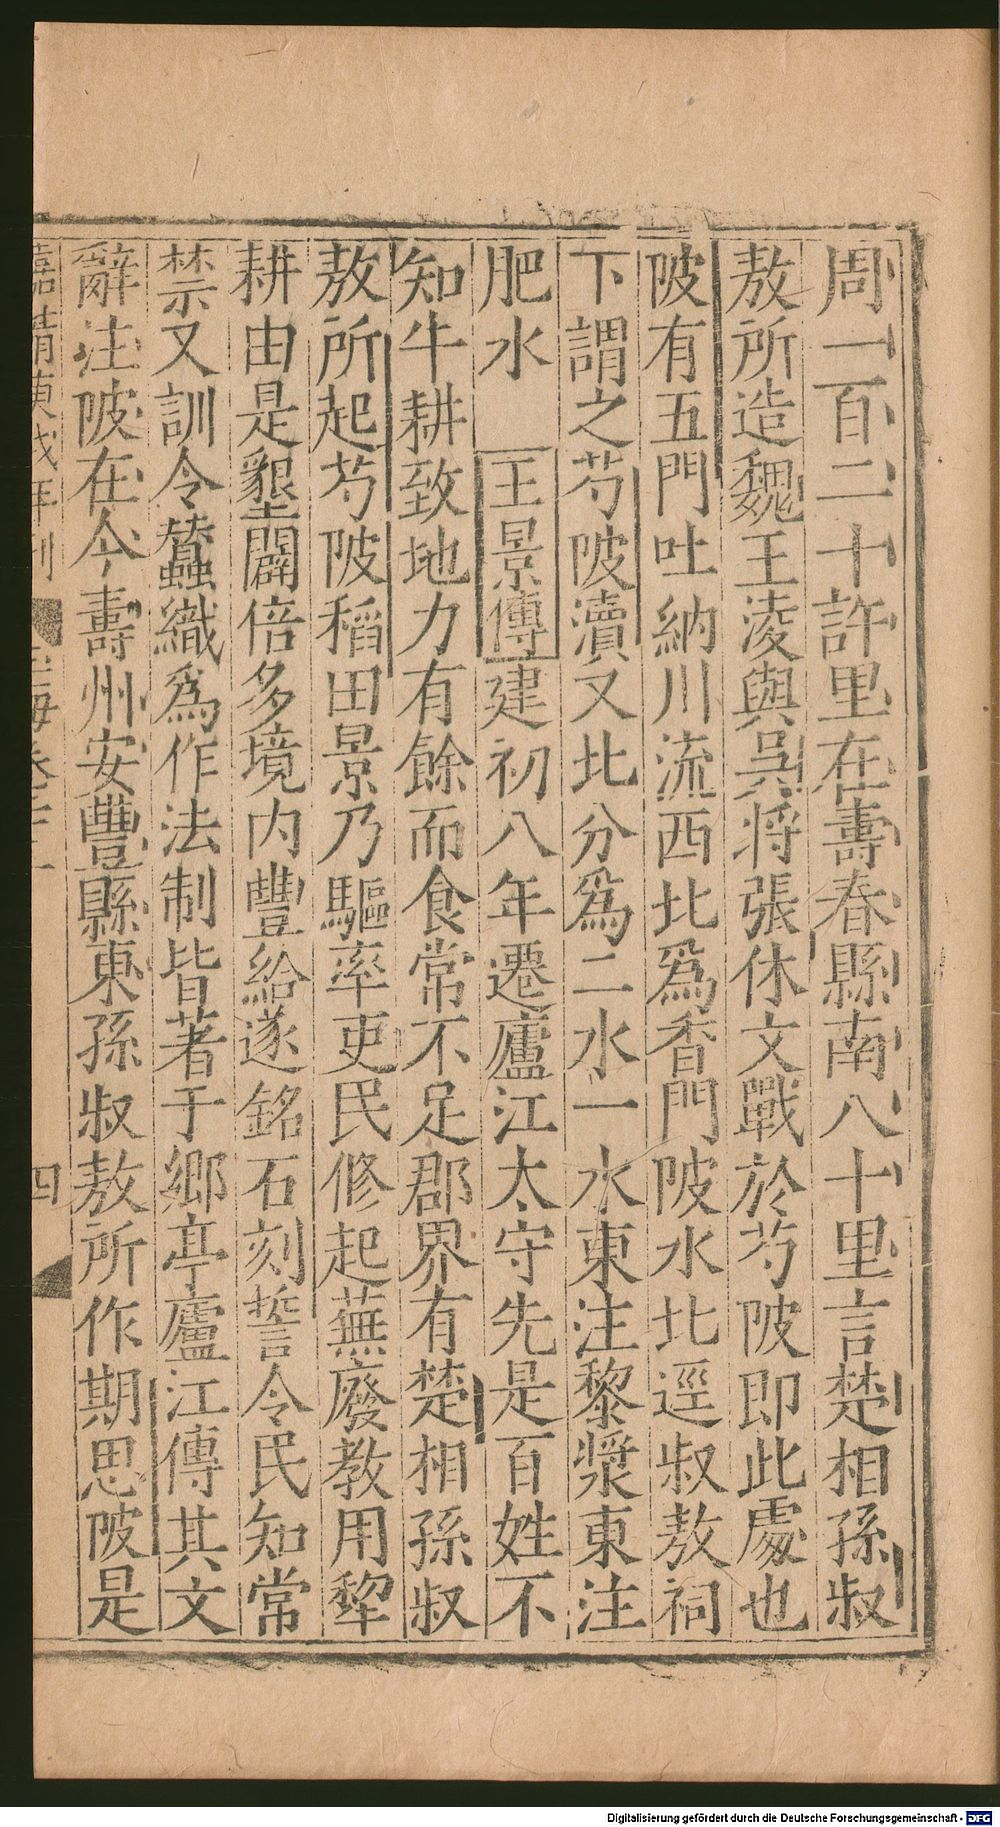 周一百二十許里在壽春縣南八十里言楚相孫叔
敖所造魏王淩與吳將張休文戰於芍陂即此處也
陂有五門吐納川流西北爲香門陂水北逕叔敖祠
下謂之芍陂瀆又北分爲二水一水東注黎漿東注
肥水　王景傳建初八年遷廬江太守先是百姓不
知牛耕致地力有餘而食常不足郡界有楚相孫叔
敖所起芍陂稻田景乃驅率吏民修起蕪廢教用犂
耕由是墾闢倍多境内豐給遂銘石刻誓令民知常
禁又訓令蠶織爲作法制皆著于鄉亭廬江傳其文
辭注陂在今壽州安豐縣東孫叔敖所作期思陂是
嘉靖
四
Digitalisierung gefördert durch die Deutsche Forschungsgemeinschaft - DFG